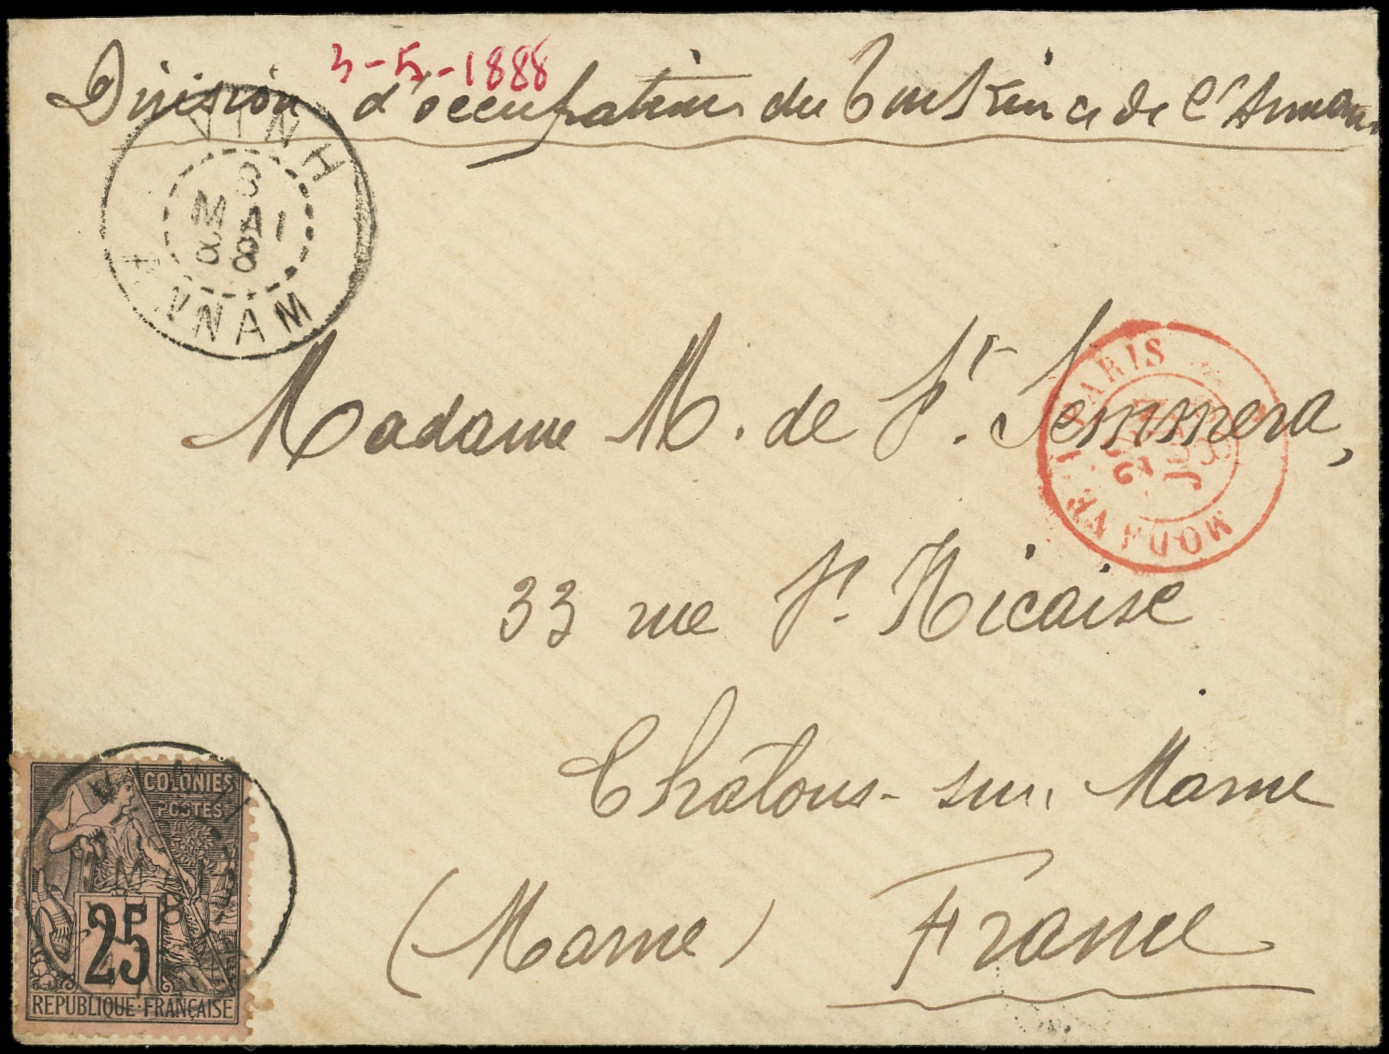 3-5-1888
Division d'occupation du Tonkin & de l'Annam
VINH
3
MAI
88
ANNAM
Madame M. de St. Semmera,
MODANE A PARIS
JUIN
88
33 rue St. Nicaise
Châlons-sur-Marne
(Marne) France
COLONIES
POSTES
25
REPUBLIQUE FRANÇAISE